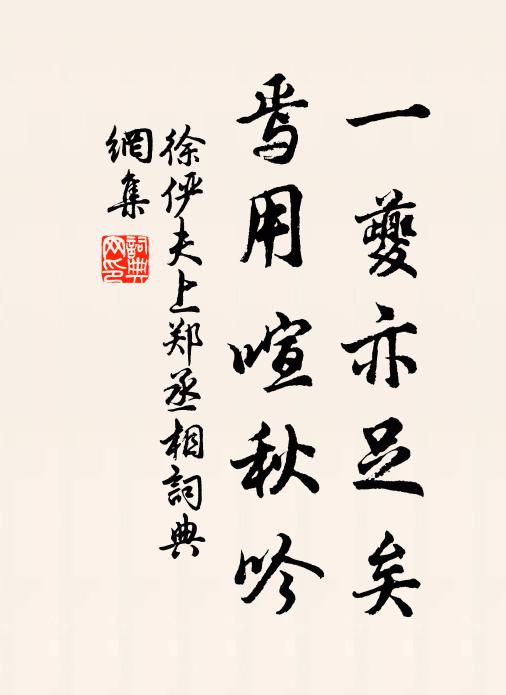 一夔亦足矣
焉用喧秋吟
徐俨夫上郑丞相詞典
網集
詞典網印